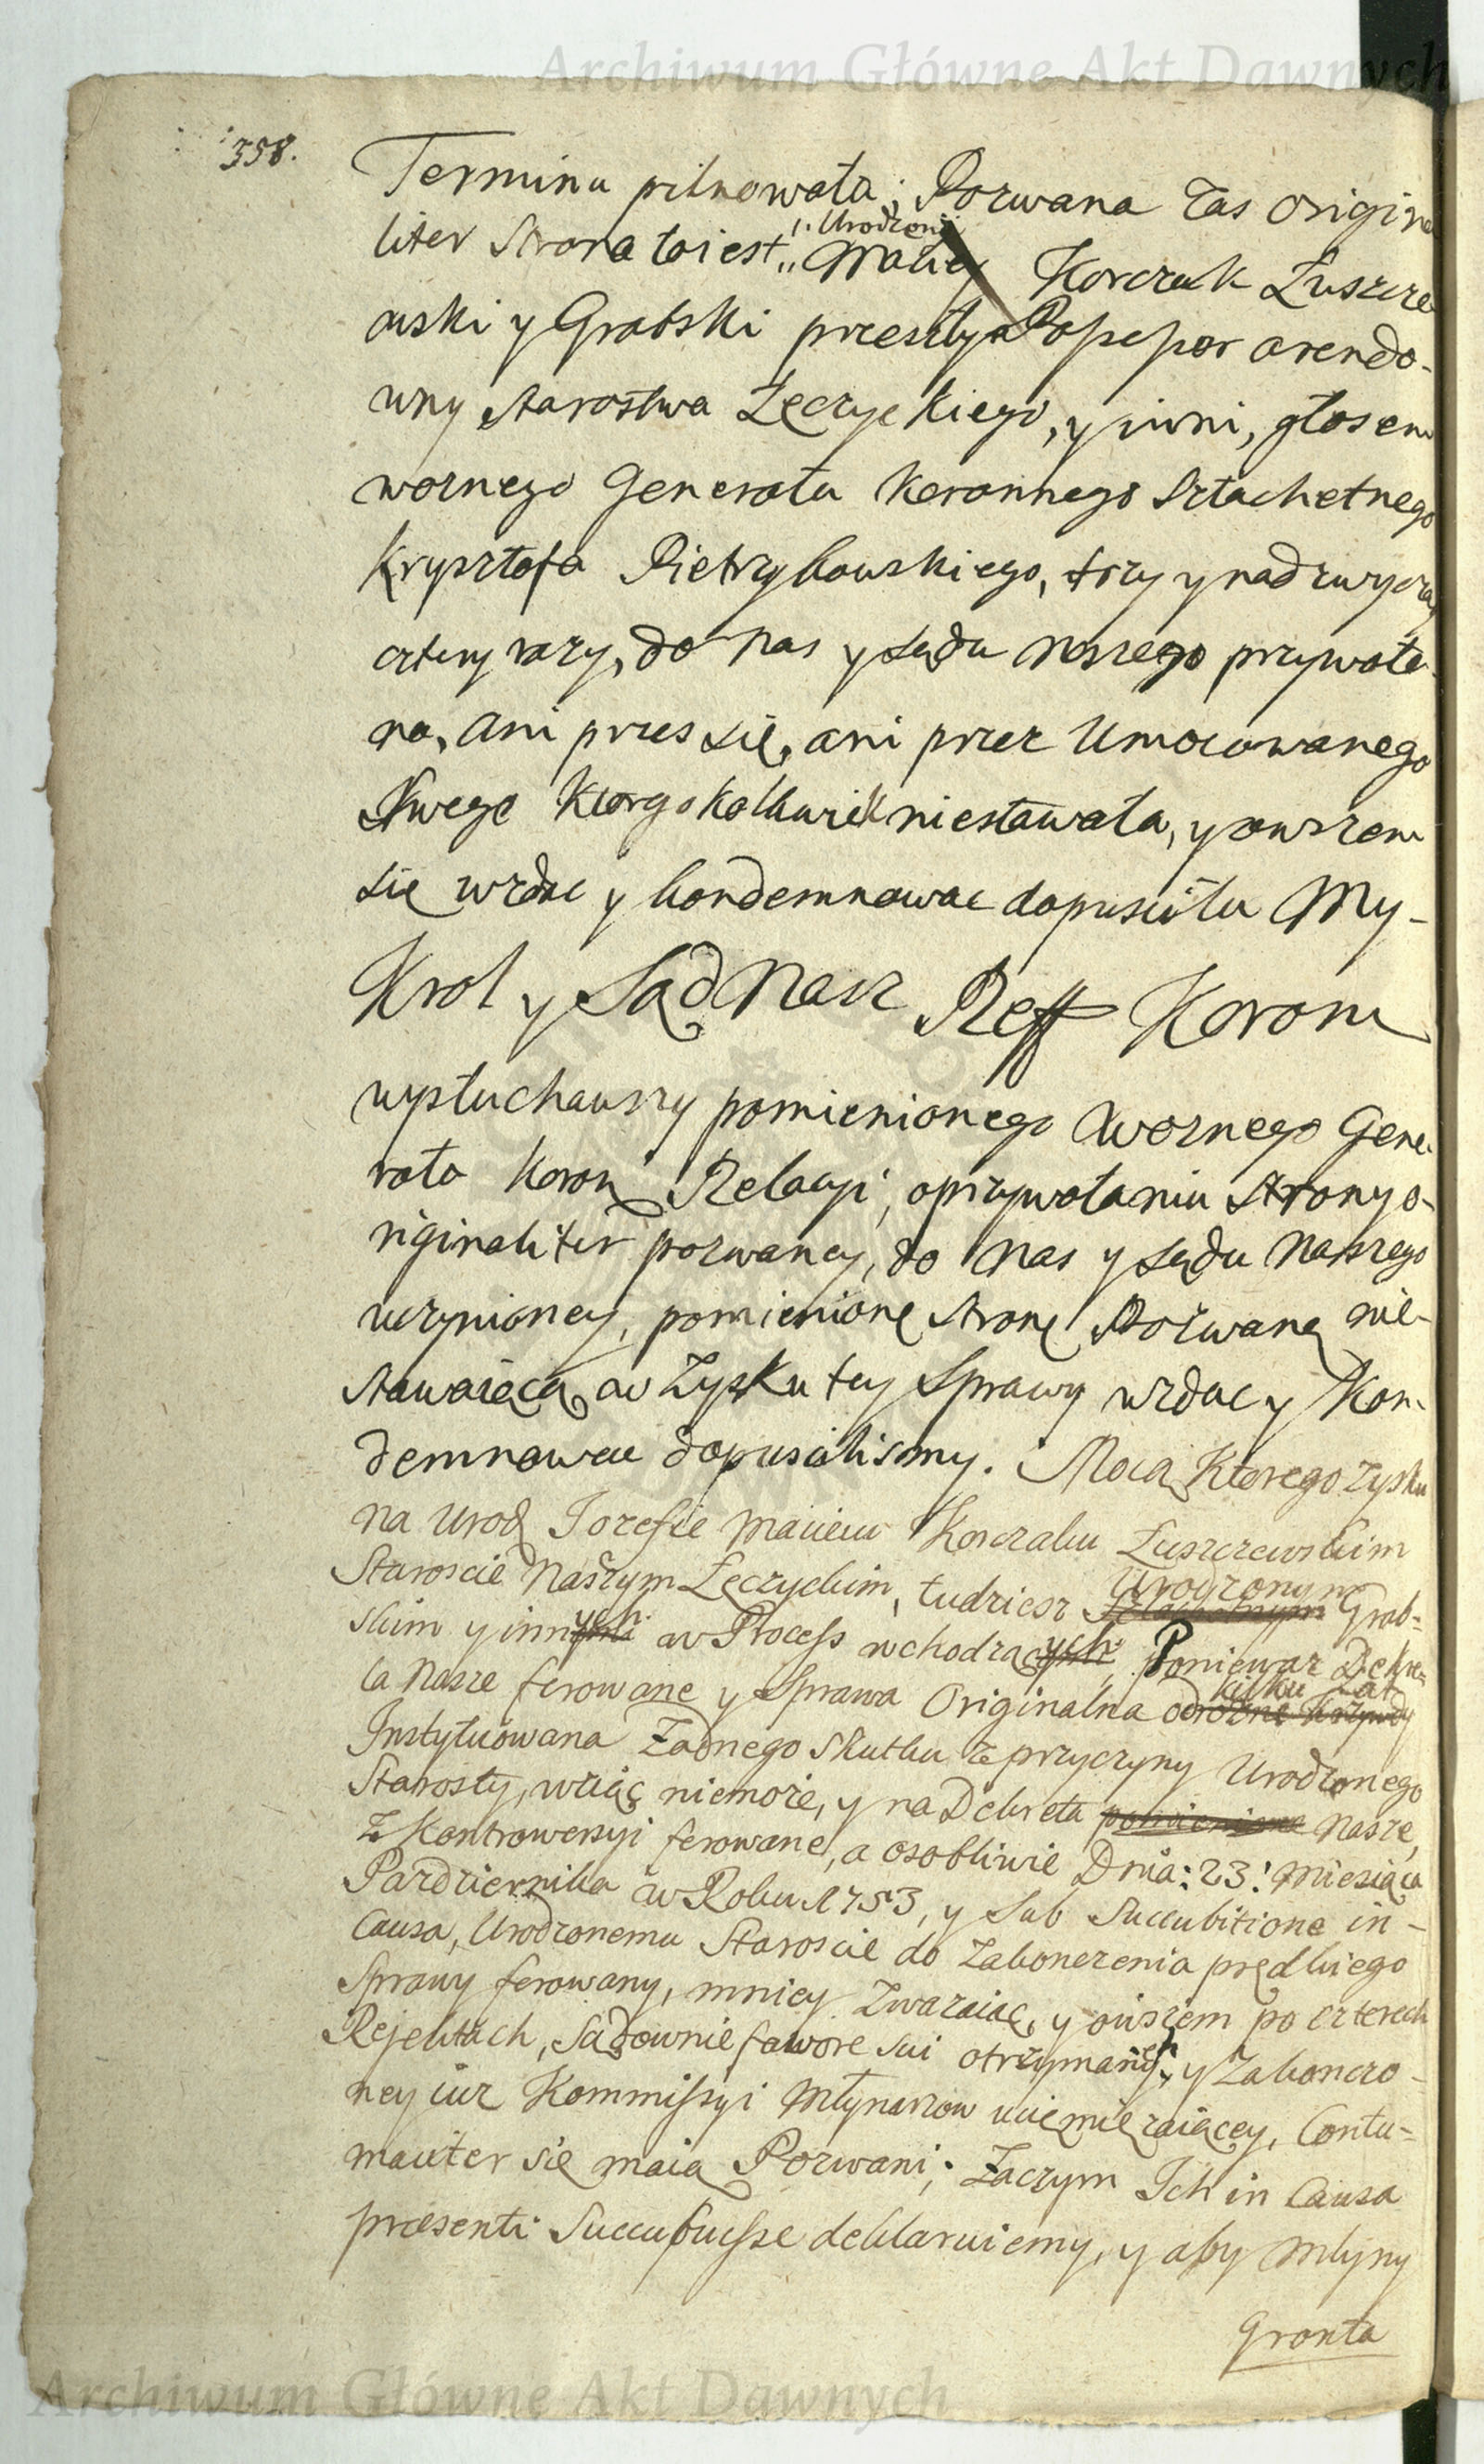 Archiwum Główne Akt Dawnych
358.
Terminu pilnowała; Pozwana zas origina
liter Strona to iest „ Urodzony Maciey Korczak Luszcze
wski y Grabski przeszly Possessor arendo-
wny Starostwa Łęczyckiego, y inni, głosem
woznego Generała Koronnego Szlachetnego
Krysztofa Pietrzykowskiego, trzy y nadzwyczay
cztery razy, do nas y sądu naszego przywoła
na, ani przes się, ani przez Umocowanego
Swego ktorgokolwiek niestawała, y owszem
się wzdac y kondemnowac dopusciła My-
Krol y Sąd Nasz Reff Koronn
wysłuchawszy pomienionego Woznego Gene-
rała Koron Relacyi, o przywołaniu Strony o-
riginaliter pozwaney, do nas y sądu Naszego
uczynioney, pomienioną Stronę Pozwaną nie-
stawaiącą w Zysku tey Sprawy wzdac y Kon-
demnowac dopuscilismy. Mocą ktorego zysku
na Urod Jozefie Macieiu Korczaku Luszczewskim
Staroscie Naszym Łęczyckim, tudziesz Szlachetnym Urodzonym Grab-
skim y innych w Process wchodzących, Poniewaz Dekre-
ta Nasze ferowane y Sprawa Originalna od kilku Lat
Instytuowana Zadnego Skutku z przyczyny Urodzonego
Starosty, wziąć niemoże, y na Dekreta pomienione Nasze,
z Kontrowersyi ferowane, a osobliwie Dnia: 23: Miesiąca
Pazdziernika w Roku 1753, y Sub Succubitione in-
Causa, Urodzonemu Staroscie do Zakonczenia prędkiego
Sprawy ferowany, mniey Zwazaiąc, y owszem po czterech
Rejektach, Sądownie favore sui otrzymanych, y Zakonczo-
ney iuz Kommissyi Młynarzow uciemięzaiącey, Contu-
maciter się maią Pozwani; Zaczym Ich in Causa
præsenti Succubuisse deklaruiemy, y aby Młyny
Gronta
Archiwum Główne Akt Dawnych